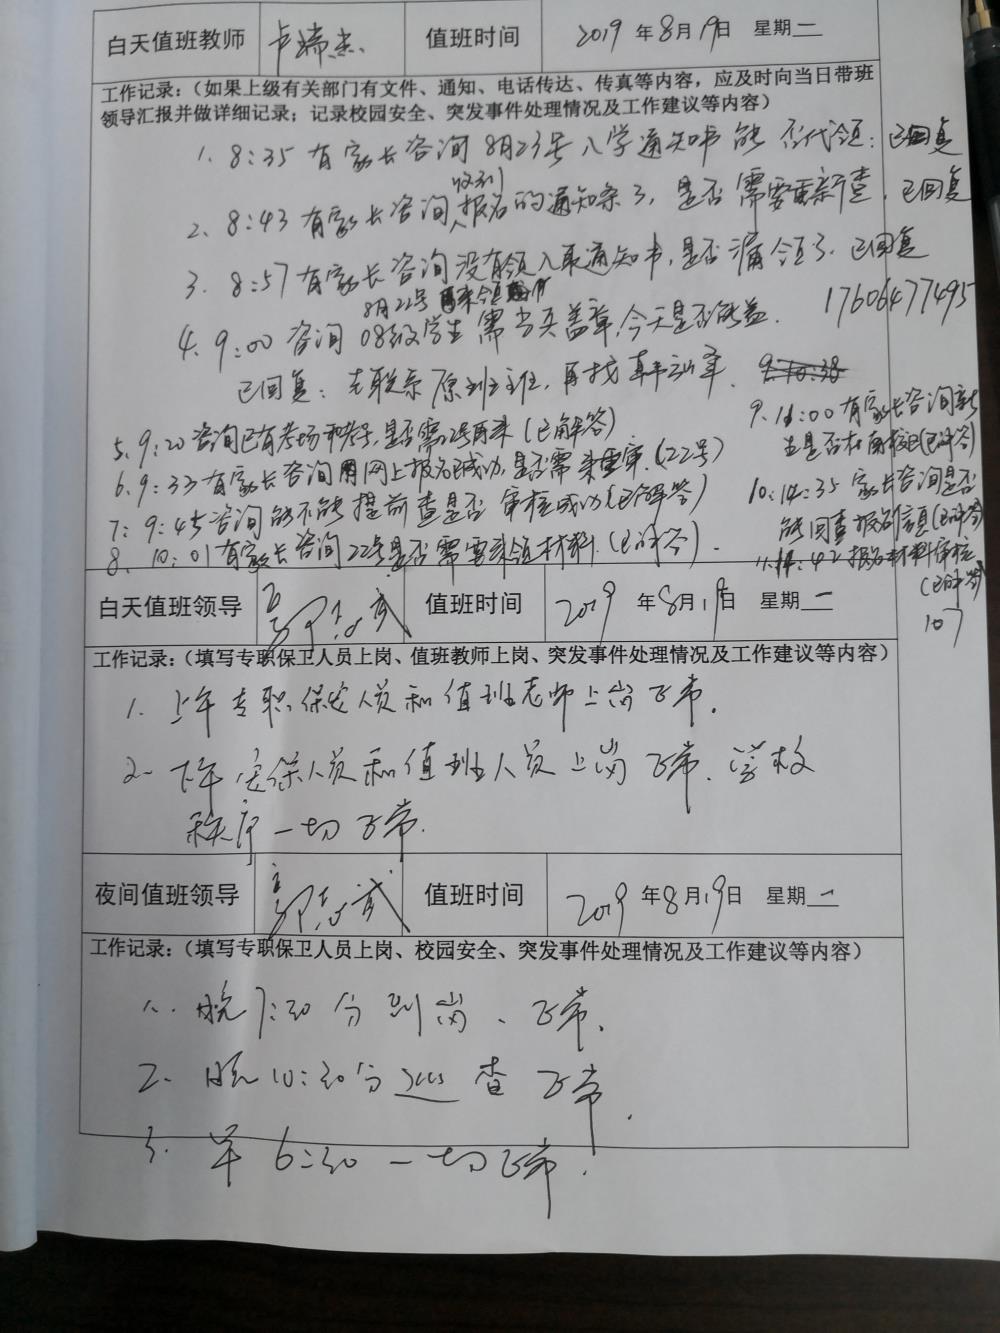 白天值班教师 卞瑞杰 值班时间 2019年8月19日 星期一
工作记录：（如果上级有关部门有文件、通知、电话传达、传真等内容，应及时向当日带班
领导汇报并做详细记录；记录校园安全、突发事件处理情况及工作建议等内容）
1. 8:35 有家长咨询8月23号入学通知书能否代领：已回复
收到
2、8:43 有家长咨询报名的通知条了，是否需要重新查．已回复
3. 8:57 有家长咨询没有领入取通知书，是否漏领了．已回复
8月22号再来领
17606477495
4、9:00 咨询08级学生需当天盖章，今天是否能盖．
已回复：先联系原班主任，再找
9 10:38
5、9:20 咨询已有考场和考号，是否需22号再来（已解答）
6、9:33 有家长咨询网上报名成功，是否需来重审．（22号）
7: 9:45 咨询能不能提前查是否审核成功（已解答）
8、10:01 有家长咨询22号是否需要来领材料．（已解答）．
9. 11:00 有家长咨询新
生是否在南校（已解答）
10. 14:35 家长咨询是否
能回查报名信息（已解答）
11. 14:42 报名材料审核
（已解答）
107
白天值班领导 郭志武 值班时间 2019年8月19日 星期一
工作记录：（填写专职保卫人员上岗、值班教师上岗、突发事件处理情况及工作建议等内容）
1. 上午专职保安人员和值班老师上岗正常．
2. 下午安保人员和值班人员上岗正常．学校
秩序一切正常．
夜间值班领导 郭志武 值班时间 2019年8月19日 星期一
工作记录：（填写专职保卫人员上岗、校园安全、突发事件处理情况及工作建议等内容）
1. 晚7:30分到岗、正常．
2. 晚10:30分巡查正常．
3. 早6:30一切正常．